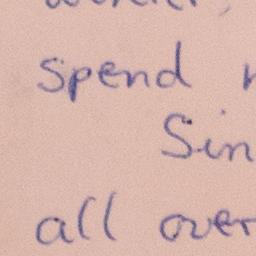 spend
Sin
all over